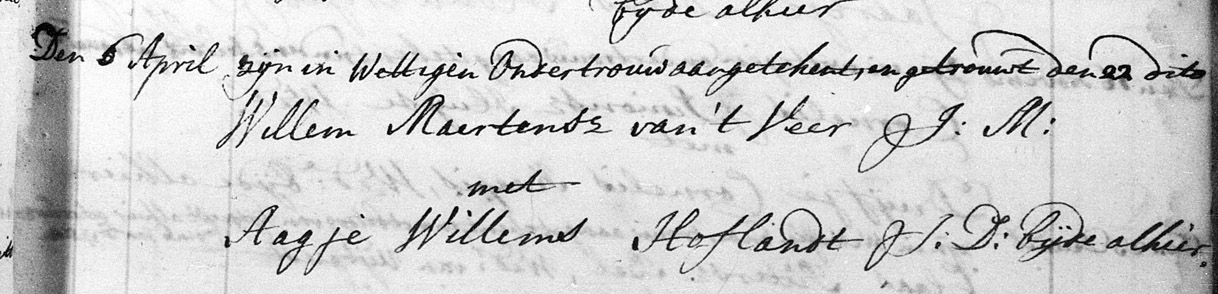 bÿde alhier
Den 6 April zÿn in Wettigen Ondertrouw aangetekent, en getrouwt den 22 dito
Willem Maertensz van't Veer J: M:
met
Aagje Willems Hoflandt J: D: bÿde alhier.